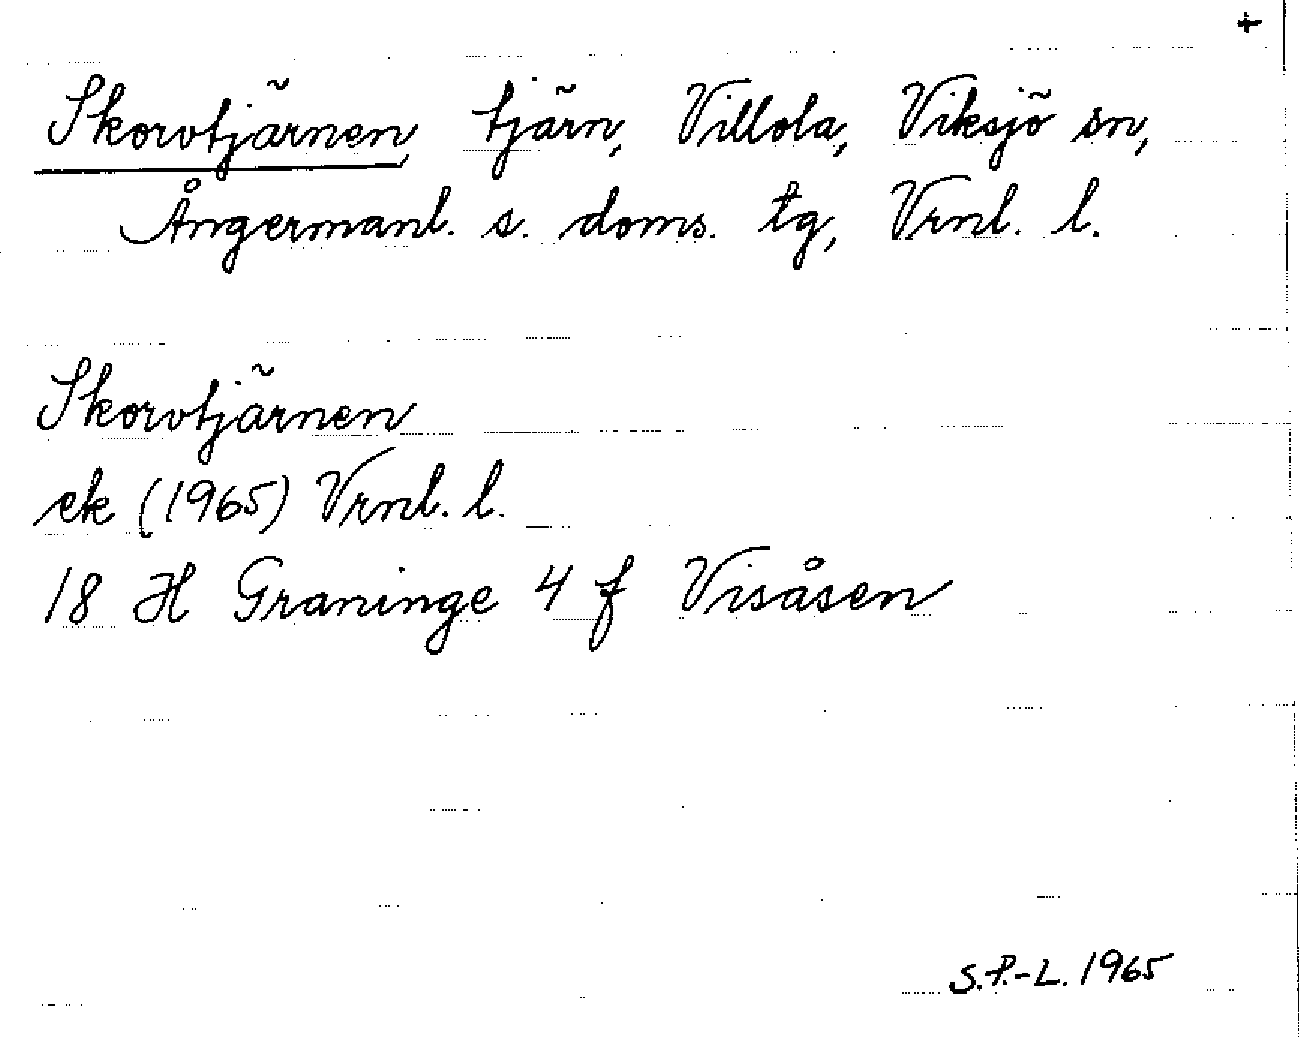 +
Skorvtjärnen, tjärn, Villola, Viksjö sn,
Ångermanl. s. doms. tg, Vrnl. l.
Skorvtjärnen
ek (1965) Vrnl. l.
18 H Graninge 4 f Visåsen
S.P.-L. 1965